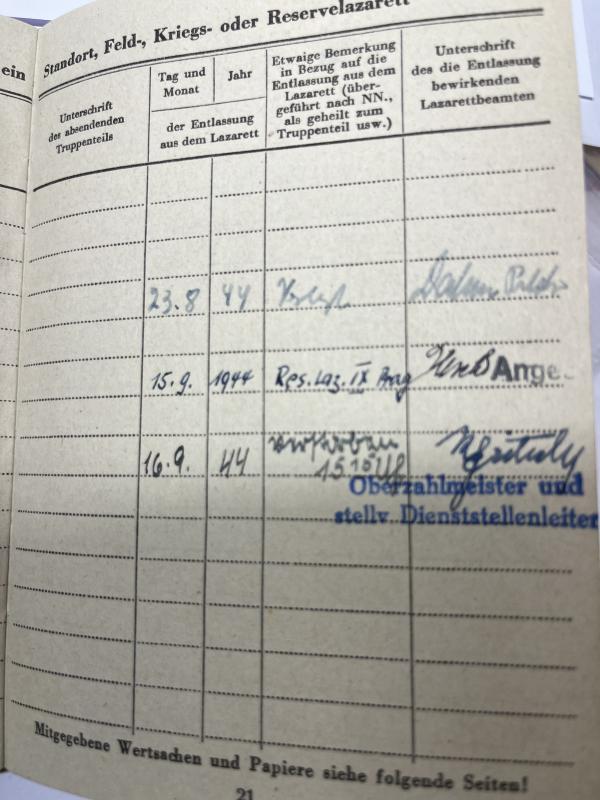 ein
Standort, Feld-, Kriegs- oder Reservelazarett
Unterschrift
des absendenden
Truppenteils
Tag und
Monat
Jahr
der Entlassung
aus dem Lazarett
Etwaige Bemerkung
in Bezug auf die
Entlassung aus dem
Lazarett (über-
geführt nach NN.,
als geheilt zum
Truppenteil usw.)
Unterschrift
des die Entlassung
bewirkenden
Lazarettbeamten
23.8 44
15.9. 1944 Res. Laz. IX Prag Ange.
16.9. 44 verstorben
15 15 Uhr
Oberzahlmeister und
stellv. Dienststellenleiter
Mitgegebene Wertsachen und Papiere siehe folgende Seiten!
21